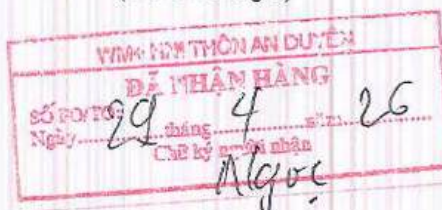 WM+ HNI THÔN AN DUYÊN
ĐÃ NHẬN HÀNG
SỐ PO/TO
Ngày 29 tháng 4 năm 26
Chữ ký người nhận
Ngọc